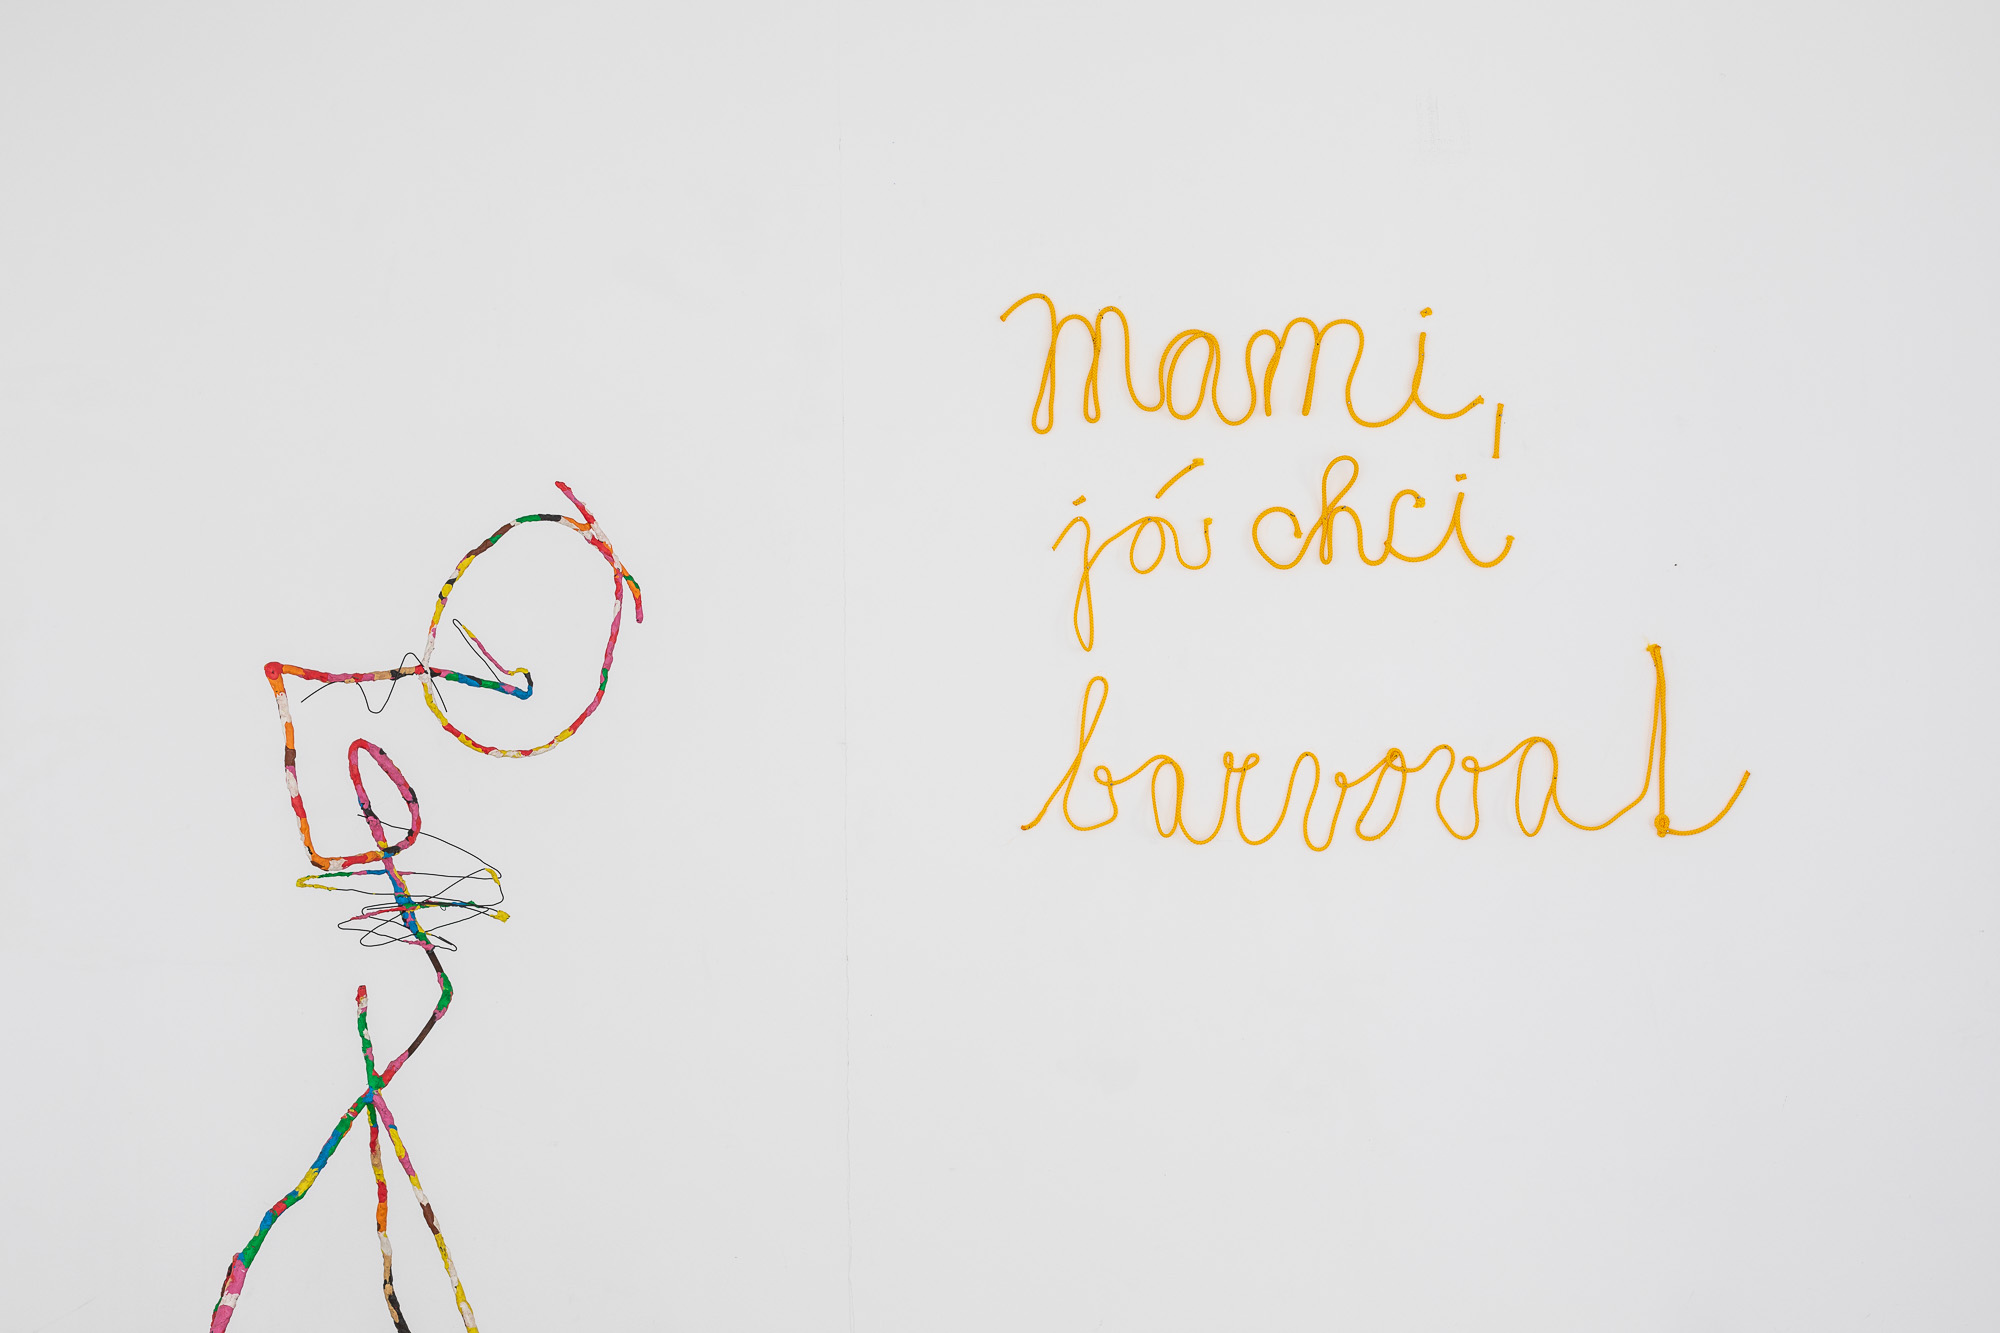 Mami,
já chci
barvoval